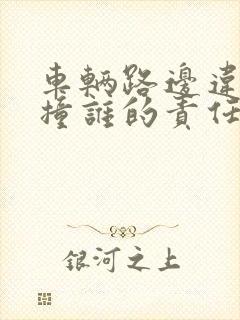 車輛路邊違
撞誰的責任
銀河之上